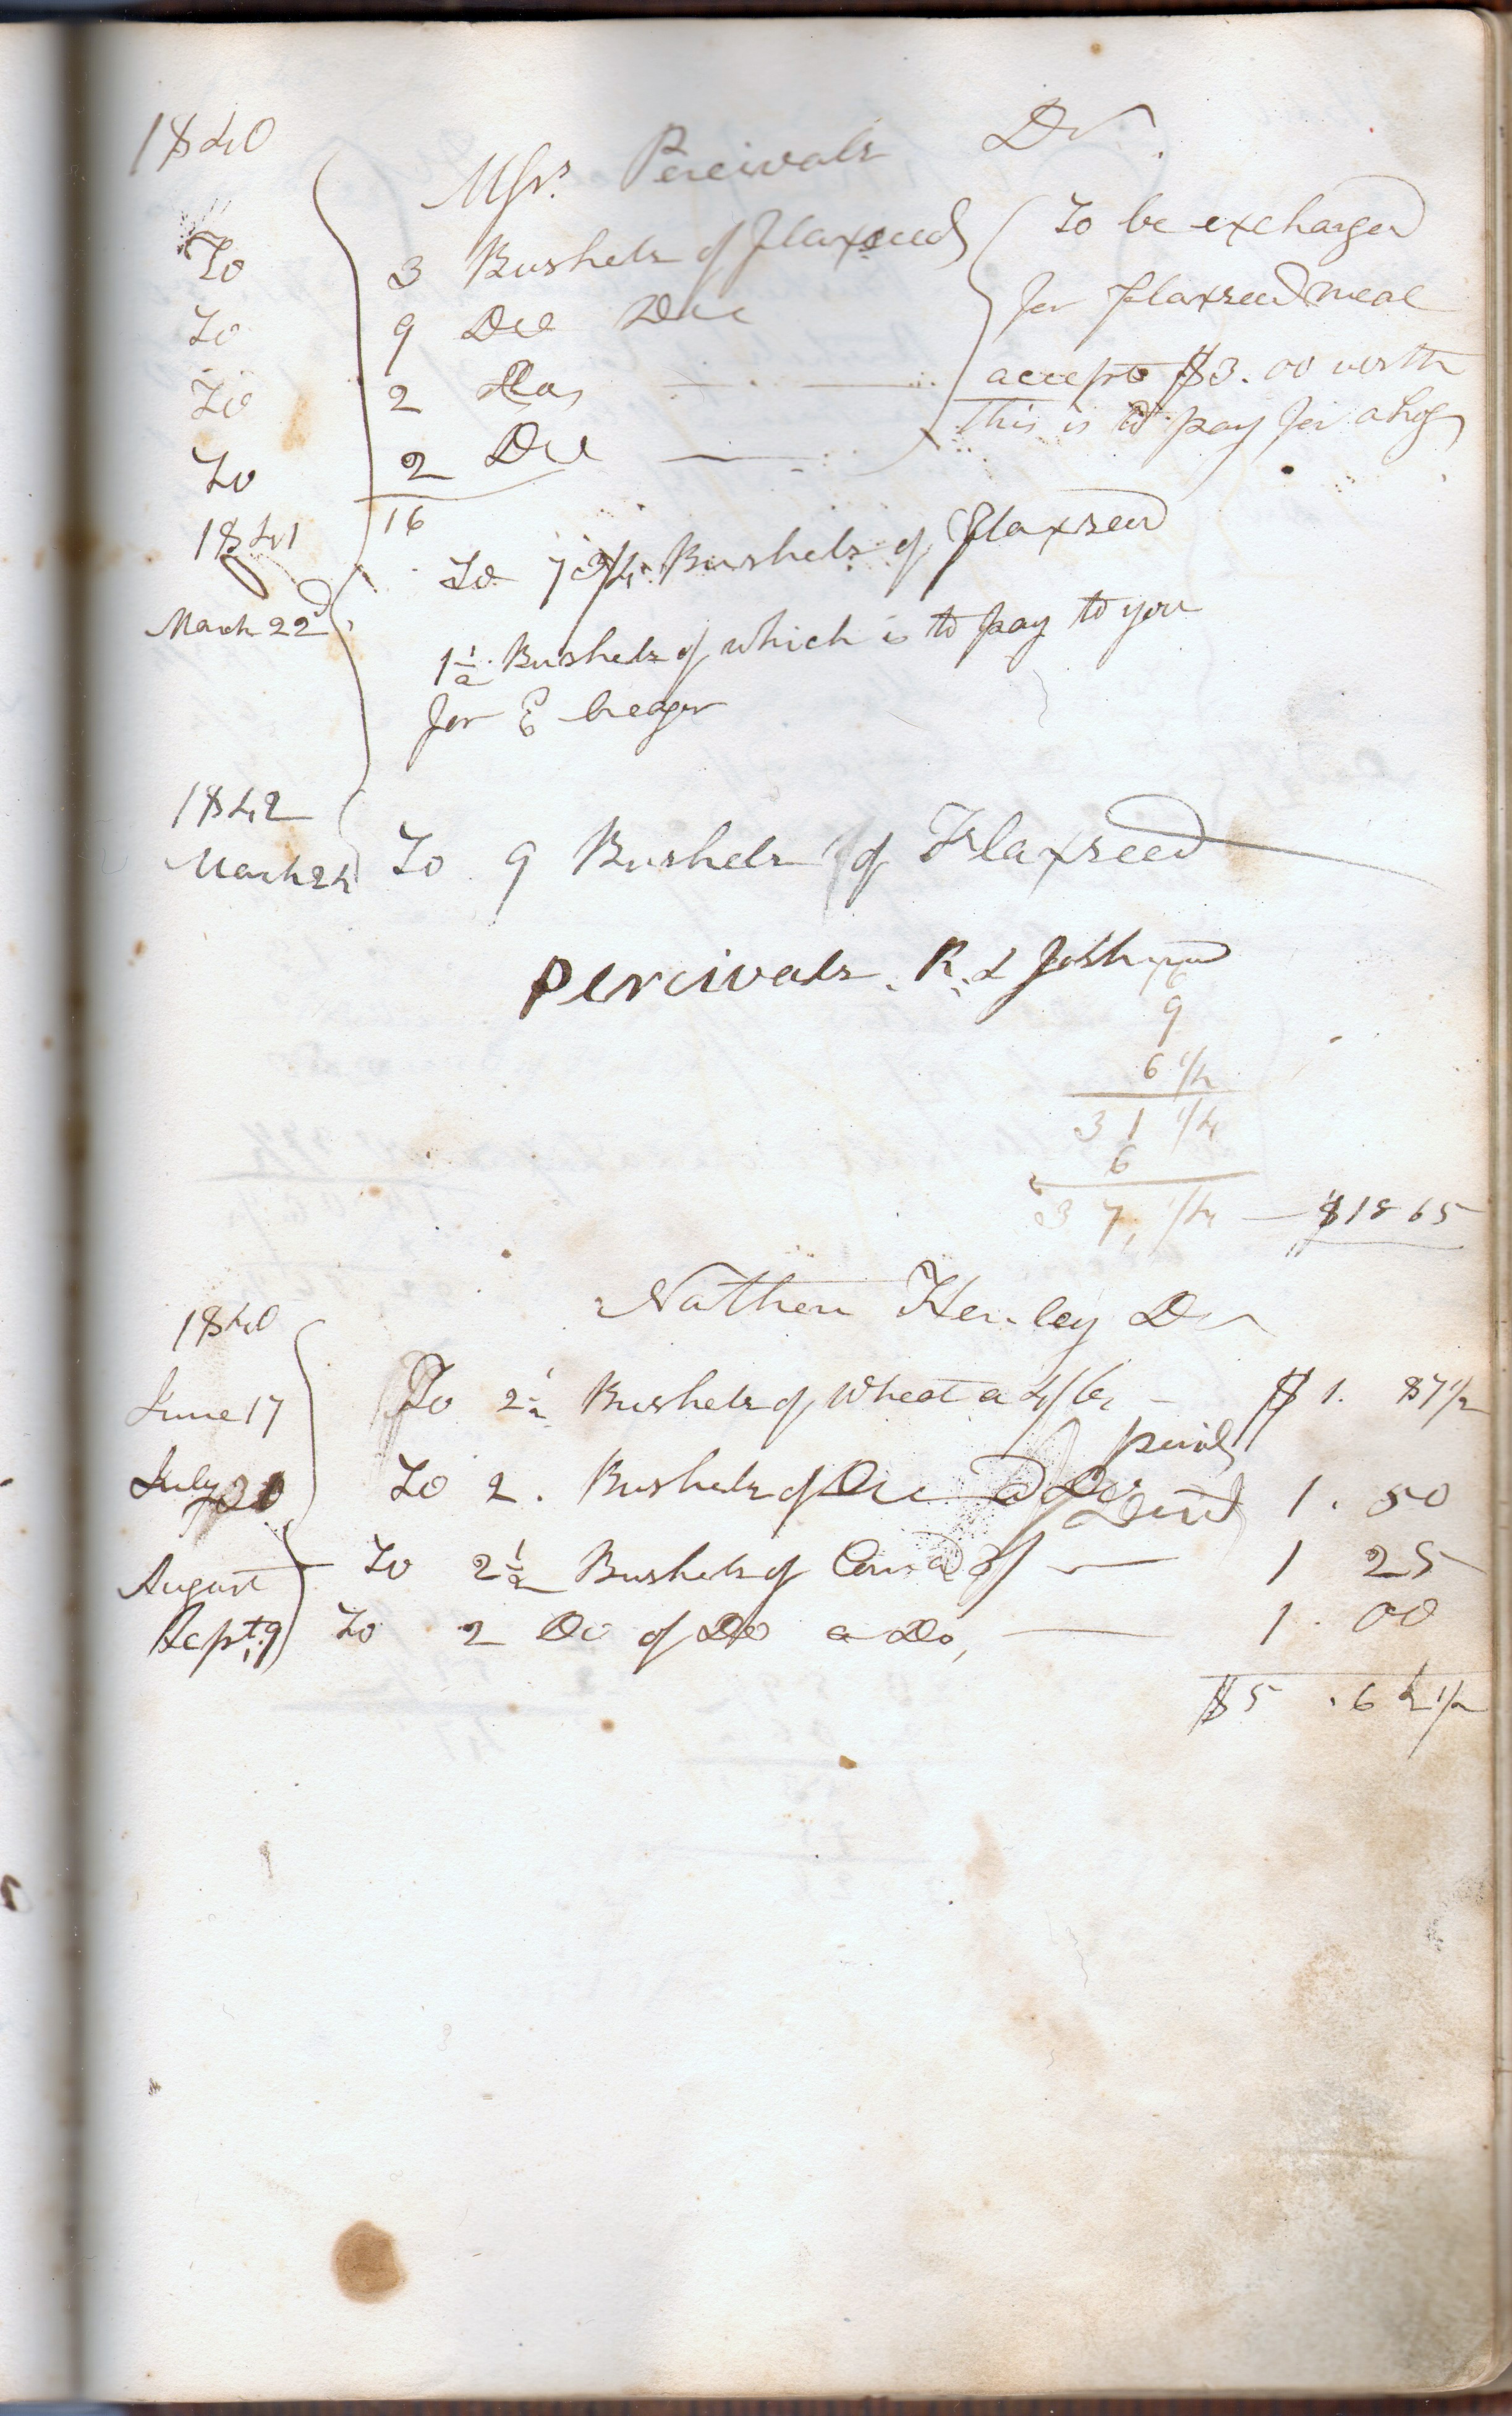 1840
Messrs. Percivals Dr.
To 3 Bushels of Flaxseed To be exchanged
To 9 Do Do for Flaxseed meal
To 2 Do accept $3.00 worth
This is to pay for a hog
To 2 Do
16
1841
To 7 3/4 Bushels of Flaxseed
March 22d
1 1/2 Bushels of which is to pay to you
for E
1842
March 24 To 9 Bushels of Flaxseed
Percivals. R. & Joshua
16
9
6 1/4
31 1/4
6
37 1/4 — $18 65
Nathen Henley Dr
1840
June 17 To 2 1/2 Bushels of Wheat a 4/6 — $1. 87 1/2
paid
July 20 To 2. Bushels of Do @ Do 1. 50
August To 2 1/2 Bushels of Corn @ 3/ — 1 25
Sept. 9 To 2 Do of Do a Do, — 1. 00
$5 .62 1/2